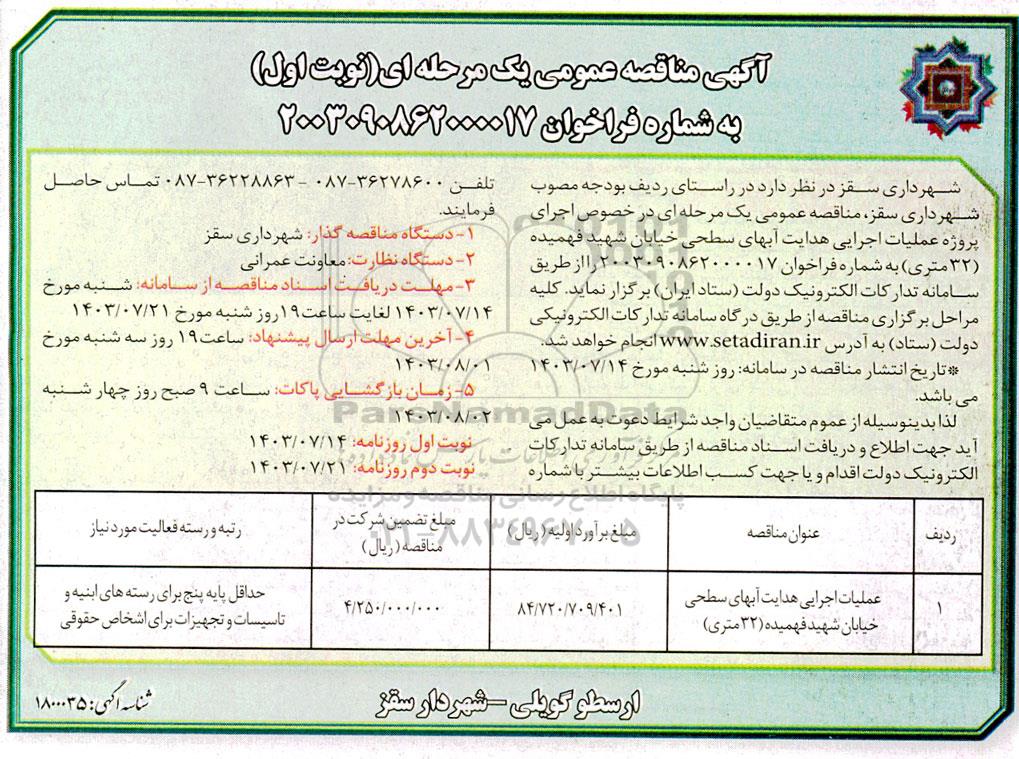 آگهی مناقصه عمومی یک مرحله ای(نوبت اول)
به شماره فراخوان ۲۰۰۳۰۹۰۸۶۲۰۰۰۰۱۷
شهرداری سقز در نظر دارد در راستای ردیف بودجه مصوب
شهرداری سقز، مناقصه عمومی یک مرحله ای در خصوص اجرای
پروژه عملیات اجرایی هدایت آبهای سطحی خیابان شهید فهمیده
(۳۲متری) به شماره فراخوان ۲۰۰۳۰۹۰۸۶۲۰۰۰۰۱۷ را از طریق
سامانه تدارکات الکترونیک دولت (ستاد ایران) برگزار نماید. کلیه
مراحل برگزاری مناقصه از طریق درگاه سامانه تدارکات الکترونیکی
دولت (ستاد) به آدرس www.setadiran.ir انجام خواهد شد.
*تاریخ انتشار مناقصه در سامانه: روز شنبه مورخ ۱۴۰۳/۰۷/۱۴
می باشد.
لذا بدینوسیله از عموم متقاضیان واجد شرایط دعوت به عمل می
آید جهت اطلاع و دریافت اسناد مناقصه از طریق سامانه تدارکات
الکترونیک دولت اقدام و یا جهت کسب اطلاعات بیشتر با شماره
تلفن ۳۶۲۷۸۶۰۰-۰۸۷ - ۳۶۲۲۸۸۶۳-۰۸۷ تماس حاصل
فرمایند.
۱- دستگاه مناقصه گذار: شهرداری سقز
۲- دستگاه نظارت: معاونت عمرانی
۳- مهلت دریافت اسناد مناقصه از سامانه: شنبه مورخ
۱۴۰۳/۰۷/۱۴ لغایت ساعت ۱۹روز شنبه مورخ ۱۴۰۳/۰۷/۲۱
۴- آخرین مهلت ارسال پیشنهاد: ساعت ۱۹ روز سه شنبه مورخ
۱۴۰۳/۰۸/۰۱
۵- زمان بازگشایی پاکات: ساعت ۹ صبح روز چهار شنبه
۱۴۰۳/۰۸/۰۲
نوبت اول روزنامه: ۱۴۰۳/۰۷/۱۴
نوبت دوم روزنامه: ۱۴۰۳/۰۷/۲۱
ParsNamadData
پایگاه اطلاع رسانی مناقصه و مزایده
۰۲۱-۸۸۳۴۹۶۷۰-۵
ردیف عنوان مناقصه مبلغ برآورد اولیه (ریال) مبلغ تضمین شرکت در مناقصه (ریال) رتبه و رسته فعالیت مورد نیاز
۱ عملیات اجرایی هدایت آبهای سطحی خیابان شهید فهمیده (۳۲متری) ۸۴/۷۲۰/۷۰۹/۴۰۱ ۴/۲۵۰/۰۰۰/۰۰۰ حداقل پایه پنج برای رسته های ابنیه و تاسیسات و تجهیزات برای اشخاص حقوقی
ارسطو گویلی - شهردار سقز
شناسه آگهی: ۱۸۰۰۰۳۵